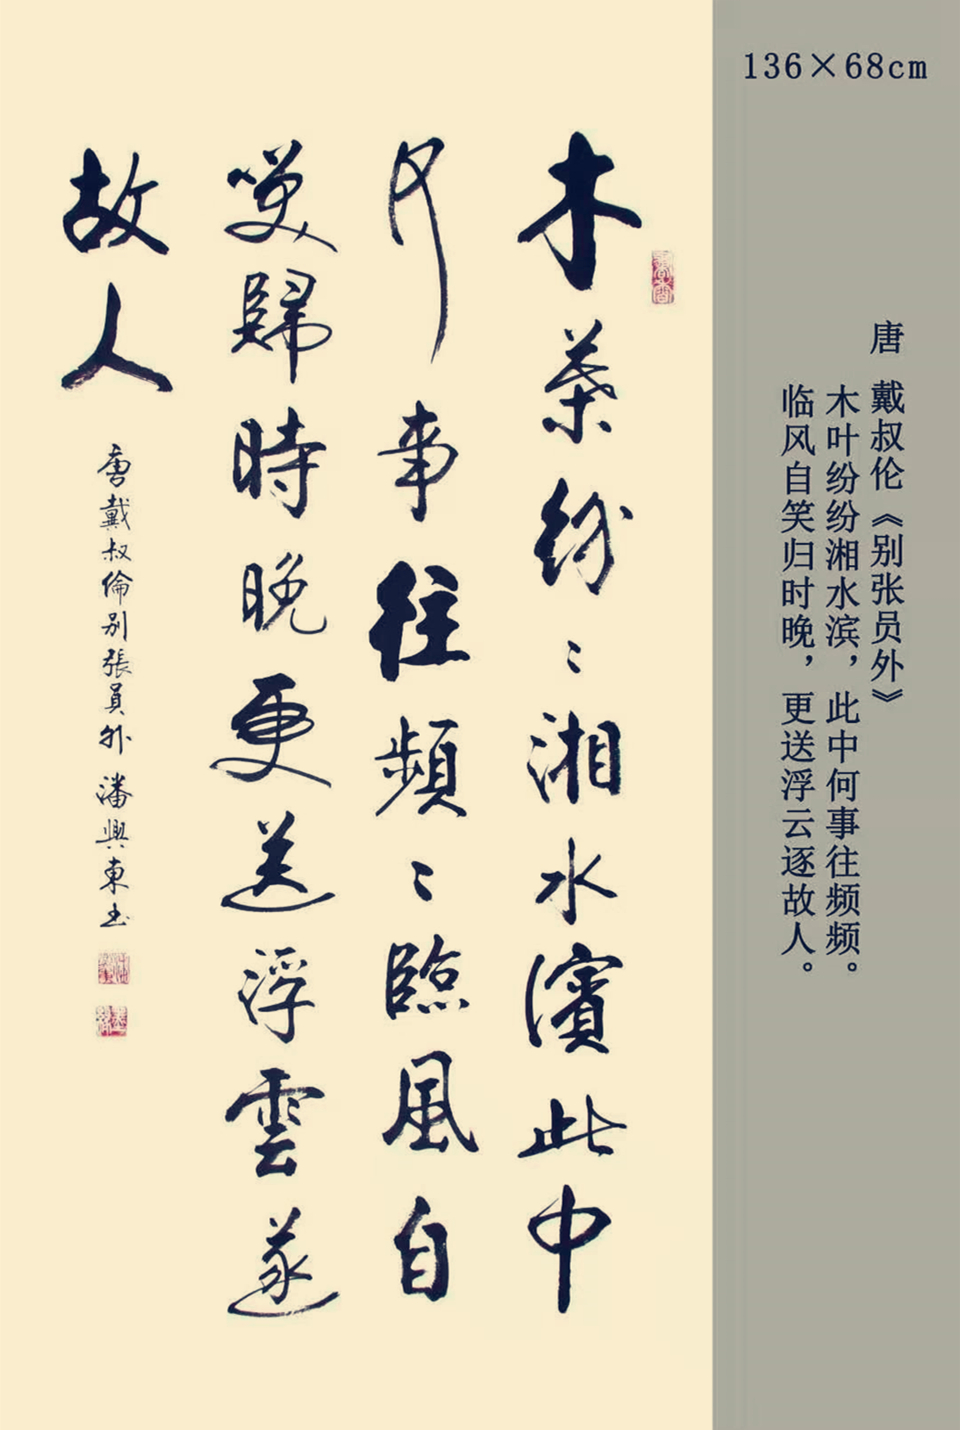 136×68cm
唐 戴叔伦《别张员外》
木叶纷纷湘水滨，此中何事往频频。
临风自笑归时晚，更送浮云逐故人。
木葉紛〻湘水濱此中
何事往頻〻臨風自
咲歸時晚更送浮雲遂
故人
唐戴叔倫别張員外 潘興東書